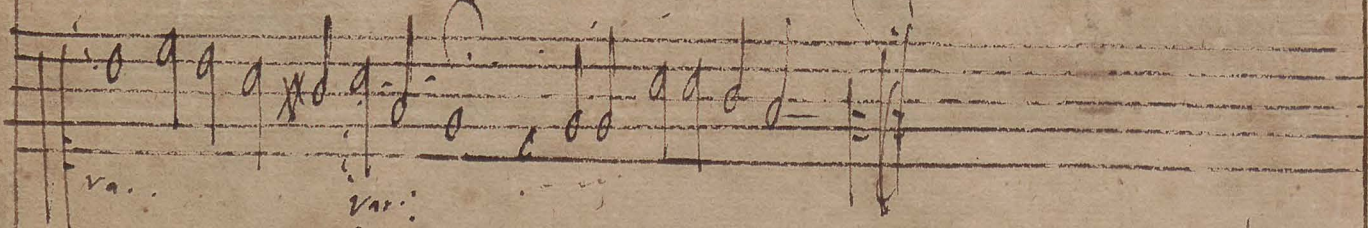 va. .
var: